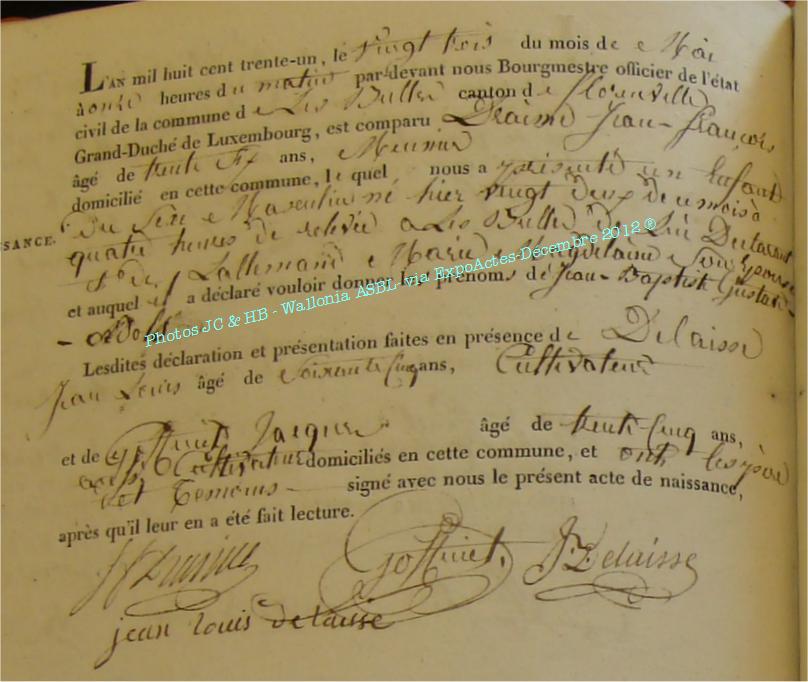 L'AN mil huit cent trente-un, le vingt trois du mois de Mai
à onze heures du matin par-devant nous Bourgmestre officier de l'état
civil de la commune de Les Bulles canton de florenville
Grand-Duché de Luxembourg, est comparu Jean-françois
âgé de trente Six ans, Meunier
domicilié en cette commune, lequel nous a présenté un Enfant
SSANCE. Du Sexe Masculin né hier vingt deux de ce mois à
quatre heures de relevée a Les Bulles de Lui Declarant
et de Lallemand Marie Magdelaine Son épouse
et auquel il a déclaré vouloir donner les prénoms de Jean-Baptist Gustave
-adolf
Photos JC & HB - Wallonia ASBL- via ExpoActes-Décembre 2012 ®
Lesdites déclaration et présentation faites en présence de Delaisse
Jean Louis âgé de Soixante Cinq ans, Cultivateur
et de Goffinet Jacques âgé de trente Cinq ans,
aussi Cultivateur domiciliés en cette commune, et ont les père
et temoins signé avec nous le présent acte de naissance,
après qu'il leur en a été fait lecture.
Goffinet. Delaisse
jean louis delaisse